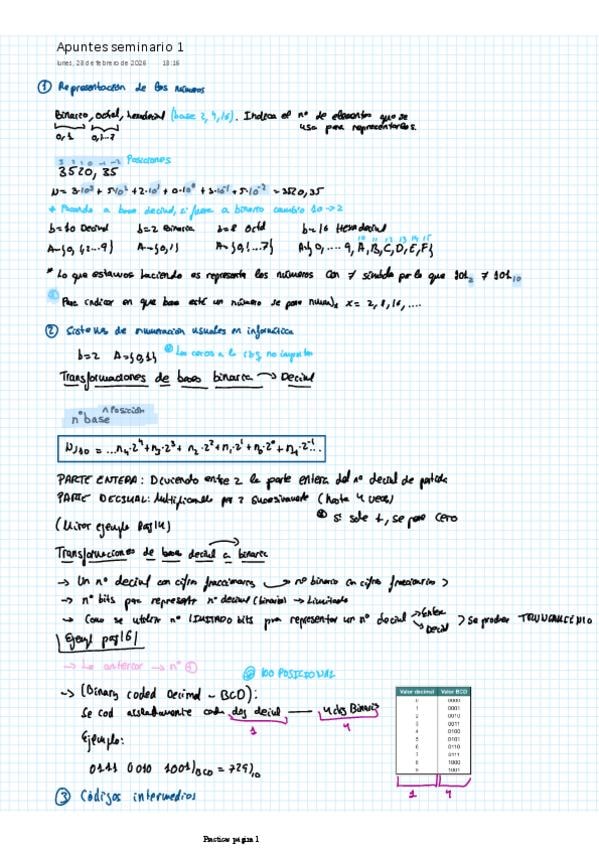 Apuntes seminario 1
lunes, 28 de febrero de 2028 18:16
① Representación de los números
Binario, octal, hexadecimal (base 2, 4, 16). Indica el nº de elementos que se
0,1 0,1...7 usa para representarlos.
3 2 1 0 -1 -2 Posiciones
3520,35
N = 3·10³ + 5·10² + 2·10¹ + 0·10⁰ + 3·10⁻¹ + 5·10⁻² = 3520,35
* Pasando a base decimal, si fuera a binario cambio 10 → 2
b=10 Decimal b=2 Binaria b=8 Octal b=16 Hexadecimal
10 11 12 13 14 15
A={0,1,2...9} A={0,1} A={0,1...7} A={0,...9, A,B,C,D,E,F}
* Lo que estamos haciendo es representar los números con ≠ símbolo por lo que 101₂ ≠ 101₁₀
Para indicar en que base esté un número se pone num)ₓ x = 2, 8, 16, ....
② Sistemas de numeración usuales en informática
b=2 A={0,1} Los ceros a la izq no importan
Transformaciones de bases binaria → Decimal
nº base ^ Posición
N)₁₀ = ...n₄·2⁴ + n₃·2³ + n₂·2² + n₁·2¹ + n₀·2⁰ + n₋₁·2⁻¹...
PARTE ENTERA: Dividiendo entre 2 la parte entera del nº decimal de partida
PARTE DECIMAL: Multiplicando por 2 sucesivamente (hasta 4 veces)
Si sale 1, se pone cero
(Mirar ejemplo Pag 14)
Transformaciones de bases decimal a binaria
→ Un nº decimal con cifras fraccionarias → nº binario con cifras fraccionarias
→ nº bits para representar nº decimal (binario) → Limitado
→ Como se utiliza nº LIMITADO bits para representar un nº decimal → Entera
→ Decimal
} Se produce TRUNCAMIENTO
Ejempl pag 16
→ Lo anterior → nº ⊕
NO POSICIONAL
→ (Binary coded Decimal - BCD):
Se cod aisladamente cada dig decimal — 4 dig Binario
1 4
Ejemplo:
0111 0010 1001)BCD = 729)₁₀
Valor decimal Valor BCD
0 0000
1 0001
2 0010
3 0011
4 0100
5 0101
6 0110
7 0111
8 1000
9 1001
1 4
③ Códigos intermedios
Practicas página 1